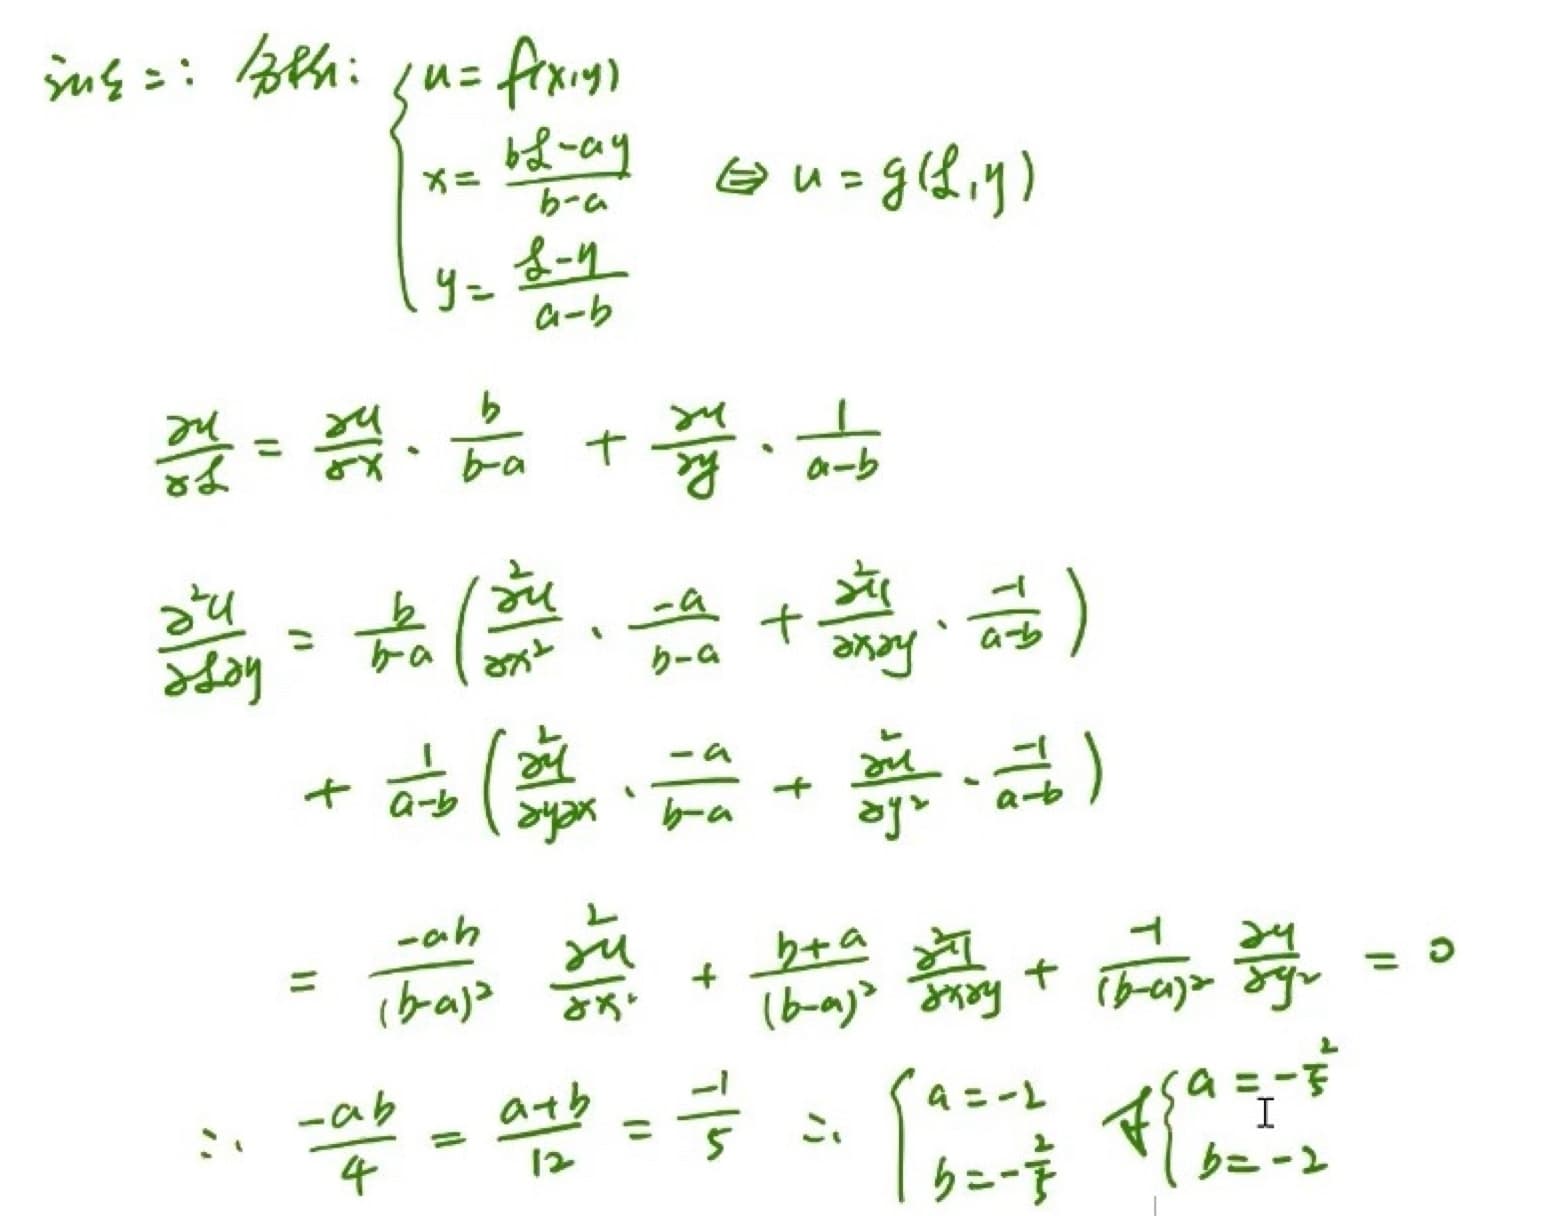 法二：分析：{ u = f(x,y)
x = (bξ-aη)/(b-a) ⇔ u = g(ξ,η)
y = (ξ-η)/(a-b)
∂u/∂ξ = ∂u/∂x · b/(b-a) + ∂u/∂y · 1/(a-b)
∂²u/∂ξ∂η = b/(b-a) ( ∂²u/∂x² · -a/(b-a) + ∂²u/∂x∂y · -1/(a-b) )
+ 1/(a-b) ( ∂²u/∂y∂x · -a/(b-a) + ∂²u/∂y² · -1/(a-b) )
= -ab/(b-a)² ∂²u/∂x² + (b+a)/(b-a)² ∂²u/∂x∂y + -1/(b-a)² ∂u/∂y² = 0
∴ -ab/4 = (a+b)/12 = -1/5 ∴ { a=-2 b=-2/5 或 { a=-2/5 b=-2